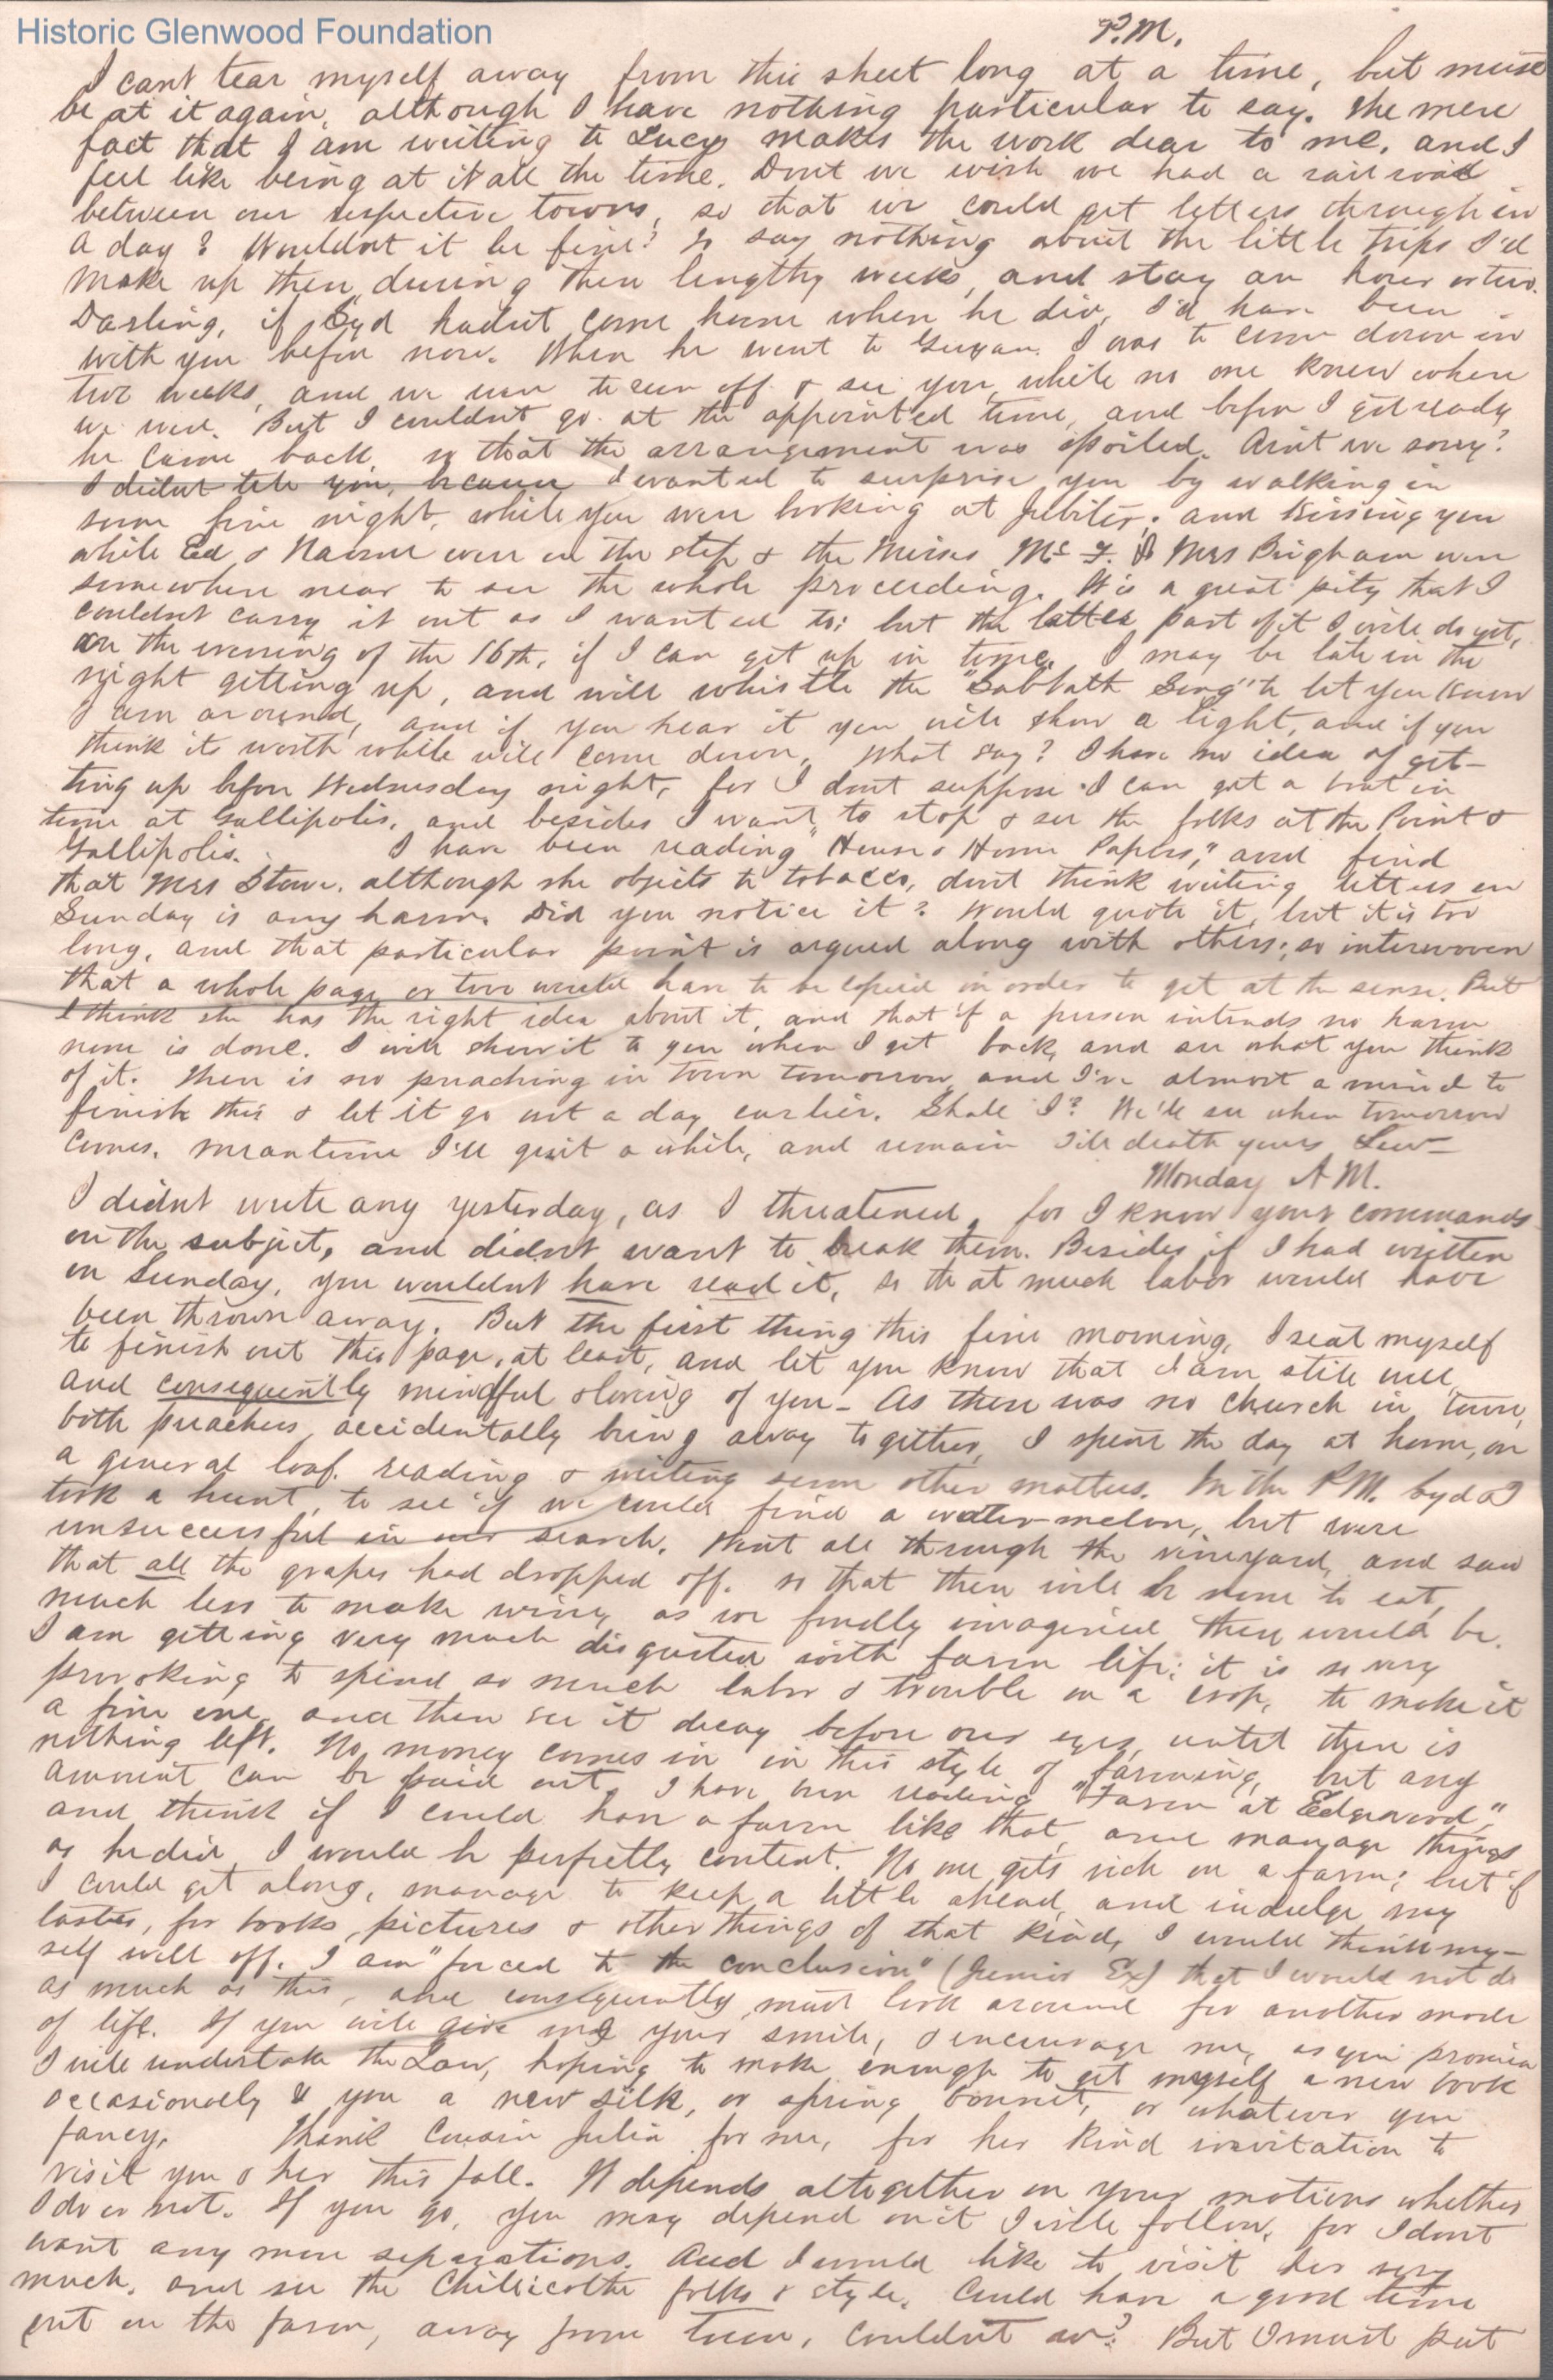 Historic Glenwood Foundation
P.M.
I cant tear myself away from this sheet long at a time, but must
be at it again, although I have nothing particular to say. The mere
fact that I am writing to Lucy makes the work dear to me, and I
feel like being at it all the time. Dont we wish we had a railroad
between our respective towns, so that we could get letters through in
a day? Wouldnt it be fine? to say nothing about the little trips I'd
make up then, during these lengthy weeks, and stay an hour or two.
Darling, if Syd hadnt come home when he did, I'd have been
with you before now. When he went to I was to come down in
two weeks, and we were to run off & see you, while no one knew where
we were. But I couldnt go at the appointed time, and before I got ready
he came back, so that the arrangement was spoiled. Aint we sorry?
I didnt tell you, because I wanted to surprise you by walking in
some fine night, while you were looking at Jubiter; and kissing you
while Ed & were on the step & the Misses Mc F. & Mrs Brigham were
somewhere near to see the whole proceeding. It is a great pity that I
couldnt carry it out as I wanted to; but the latter part of it I will do yet,
on the evening of the 16th, if I can get up in time. I may be late in the
night getting up, and will whistle the "Sabbath Song" to let you know
I am around, and if you hear it you will show a light, and if you
think its worth while will come down. What say? I have no idea of get-
ting up before Wednesday night, for I dont suppose I can get a boat in
time at Gallipolis, and besides I want to stop & see the folks at the Point &
Gallipolis. I have been reading "House & Home Papers," and find
that Mrs Stowe, although she objects to tobacco, dont think writing letters on
Sunday is any harm. Did you notice it? Would quote it, but it is too
long, and that particular point is argued along with others; so interwoven
that a whole page or two would have to be copied in order to get at the sense. But
I think she has the right idea about it, and that if a person intends no harm
none is done. I will show it to you when I get back, and see what you think
of it. There is no preaching in town tomorrow, and I've almost a mind to
finish this & let it go out a day earlier. Shall I? We'll see when tomorrow
comes. Meantime I'll quit a while, and remain till death yours Lew-
Monday A.M.
I didnt write any yesterday, as I threatened, for I know your commands
on the subject, and didnt want to break them. Besides if I had written
on Sunday, you wouldnt have read it, so that much labor would have
been thrown away. But the first thing this fine morning, I seat myself
to finish out this page, at least, and let you know that I am still well,
and consequently mindful & loving of you- As there was no church in town,
both preachers accidentally being away together, I spent the day at home, on
a general loaf, reading & writing some other matters. In the P.M. Syd & I
took a hunt, to see if we could find a water-melon, but were
unsuccessful in our search. Went all through the vineyard, and saw
that all the grapes had dropped off. so that there will be none to eat,
much less to make wine, as we fondly imagined there would be.
I am getting very much disgusted with farm life; it is so very
provoking to spend so much labor & trouble on a crop, to make it
a fine one, and then see it decay before our eyes, until there is
nothing left. No money comes in in this style of farming, but any
amount can be paid out. I have been reading "Farm at Edgewood,"
and think if I could have a farm like that, and manage things
as he did I would be perfectly content. No one gets rich on a farm; but if
I could get along, manage to keep a little ahead, and indulge my
tastes, for books, pictures & other things of that kind, I would think my-
self well off. I am "forced to the conclusion" (Junior Ex) that I would not do
as much as this, and consequently must look around for another mode
of life. If you will give me your smile, & encourage me, as you promise
I will undertake the Law, hoping to make enough to get myself a new book
occasionally & you a new silk, or spring bonnet, or whatever you
fancy. Thank Cousin Julia for me, for her kind invitation to
visit you & her this fall. It depends altogether on your motions whether
I do or not. If you go, you may depend on it I will follow, for I dont
want any more separations. And I would like to visit her very
much, and see the Chillicothe folks & style. Could have a good time
out on the farm, away from town, couldnt we? But I must put